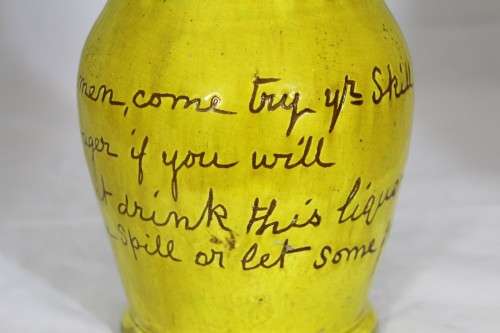 men, come try yr Skill
ager if you will
t drink this liquo
spill or let some